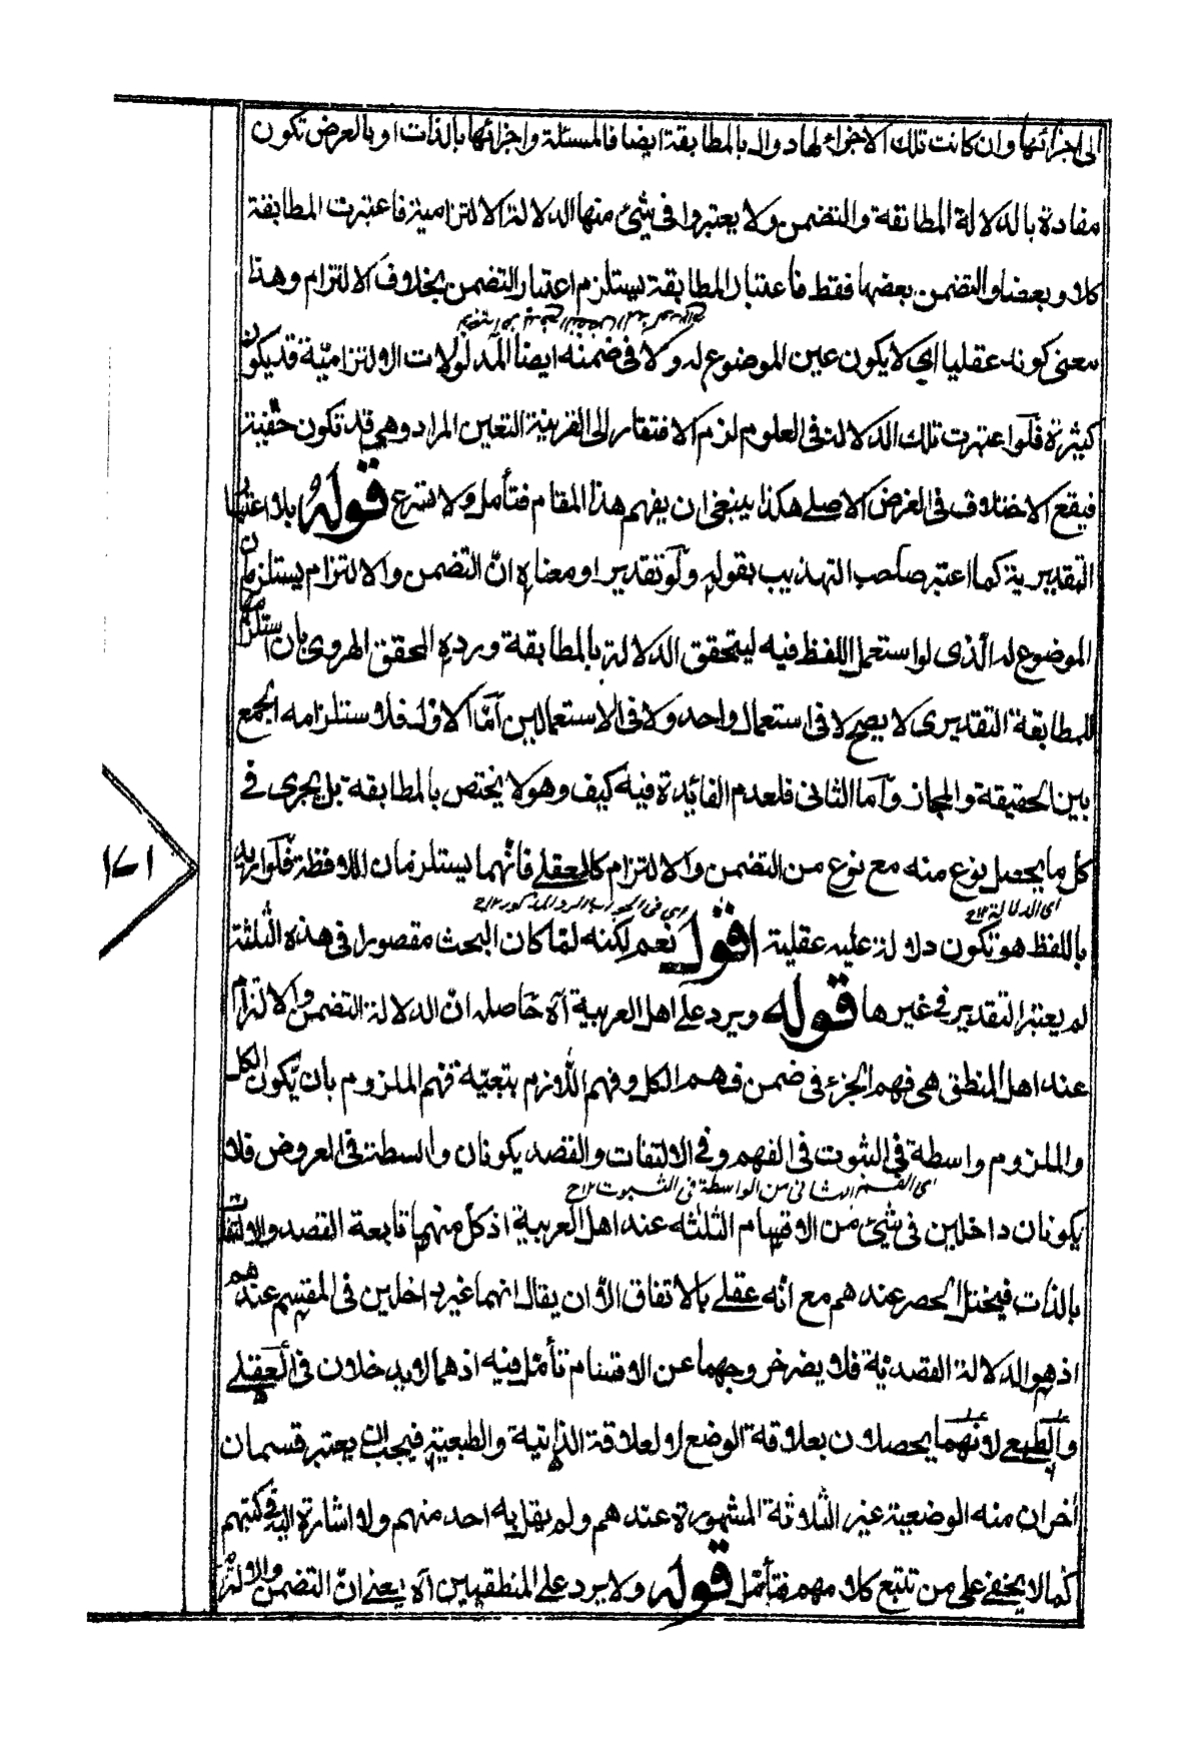 الى اجزائها وان كانت تلك الاجزاء لها دوال بالمطابقة ايضا فالمسئلة واجزائها بالذات او بالعرض تكون
مفادة بالدلالة المطابقة والتضمن ولا يعتبروا فى شئ منها الدلالة الالتزامية فاعتبرت المطابقة
كلا وبعضا والتضمن بعضها فقط فاعتبار المطابقة يستلزم اعتبار التضمن بخلاف الالتزام وهذا
معنى كونه عقليا اى لا يكون عين الموضوع له ولا فى ضمنه ايضا المدلولات الالتزامية قد يكون
كثيرة فلو اعتبرت تلك الدلالة فى العلوم لزم الافتقار الى القرينة لتعين المراد وهى قد تكون خفية
فيقع الاختلاف فى الغرض الاصلى هكذا ينبغى ان يفهم هذا المقام فتأمل ولا تسرع قوله بلا اعتبار
التقديرية كما اعتبر صاحب التهذيب بقوله ولو تقديرا ومعناه ان التضمن والالتزام يستلزمان
الموضوع له الذى لو استعمل اللفظ فيه ليتحقق الدلالة بالمطابقة ورده المحقق الهروى بان استلزامهما
للمطابقة التقديرى لا يصح لا فى استعمال واحد ولا فى الاستعمالين امّا الاول فلاستلزامه الجمع
بين الحقيقة والمجاز وامّا الثانى فلعدم الفائدة فيه كيف وهو لا يختص بالمطابقة بل يجرى فى
كل ما يحصل نوع منه مع نوع من التضمن والالتزام كالعقلى فانهما يستلزمان اللافظة فلو اريد
اى الدلالة ١٢
١٧١
باللفظ هو تكون دلالة عليه عقلية اقول نعم لكنه لمّا كان البحث مقصورا فى هذه الثلثة
لم يعتبر التقدير فى غيرها قوله ويرد على اهل العربية آه حاصله ان الدلالة التضمن والالتزام
عند اهل المنطق هى فهم الجزء فى ضمن فهم الكل وفهم اللازم بتبعية فهم الملزوم بان يكون الكل
والملزوم واسطة فى الثبوت فى الفهم وفى الالتفات والقصد يكونان واسطة فى العروض فلا
اى القسم الثانى من الواسطة فى الثبوت ١٢
يكونان داخلين فى شئ من الاقسام الثلثه عند اهل العربية اذ كل منهما تابعة القصد والالتفات
بالذات فيختل الحصر عندهم مع انه عقلى بالاتفاق الا ان يقال انهما غير داخلين فى المقسم عندهم
اذ هو الدلالة القصدية فلا يضر خروجهما عن الاقسام تأمل فيه اذ هما لا يدخلان فى العقلى
والطبعى لانهما يحصلان بعلاقة الوضع لا لعلاقة الذاتية والطبعية فيجب ان يعتبر قسمان
أخران منه الوضعية غير الثلاثة المشهورة عندهم ولم يقل به احد منهم ولا اشارة اليه فى كتبهم
كما لا يخفى على من تتبع كلامهم فتأمل قوله ولا يرد على المنطقيين آه يعنى ان التضمن والالتزام